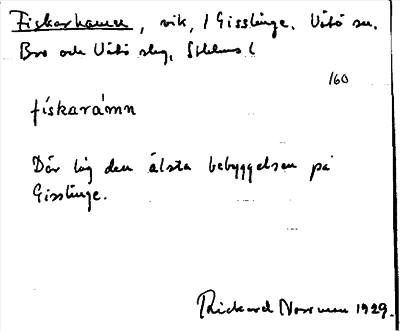 Fiskarhamn, vik, / Gisslinge. Vätö sn.
Bro och Vätö slg, Sthlms l
160
fiskarámn
Där låg den älsta bebyggelsen på
Gisslinge.
Rickard Norrman 1929.